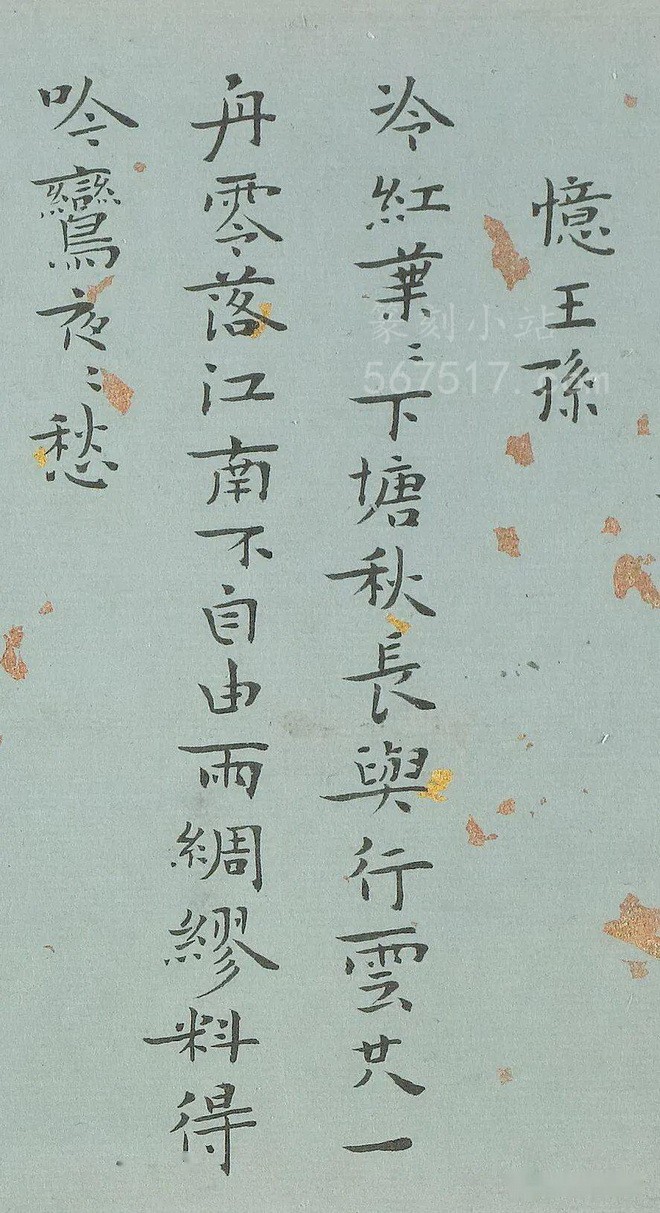 憶王孫
冷紅葉〻下塘秋長與行雲共一
舟零落江南不自由兩綢繆料得
吟鸞夜〻愁
篆刻小站
567517.com